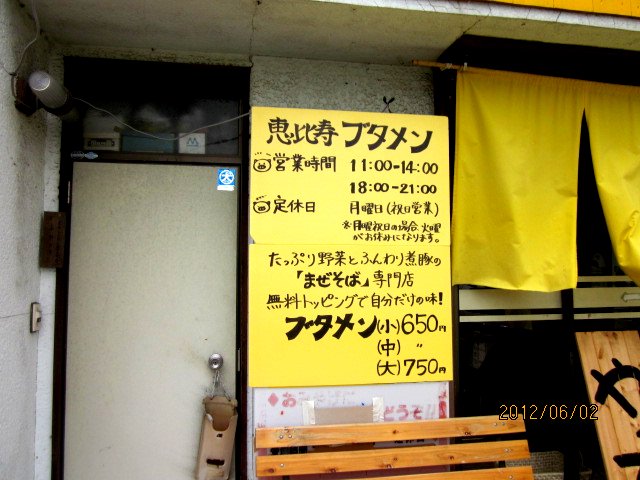 恵比寿 ブタメン
営業時間 11:00-14:00
18:00-21:00
定休日 月曜日(祝日営業)
※月曜祝日の場合、火曜
がお休みになります。
たっぷり野菜とふんわり煮豚の
「まぜそば」専門店
無料トッピングで自分だけの味!
ブタメン(小)650円
(中) 〃
(大)750円
どうぞ!!
や
2012/06/02